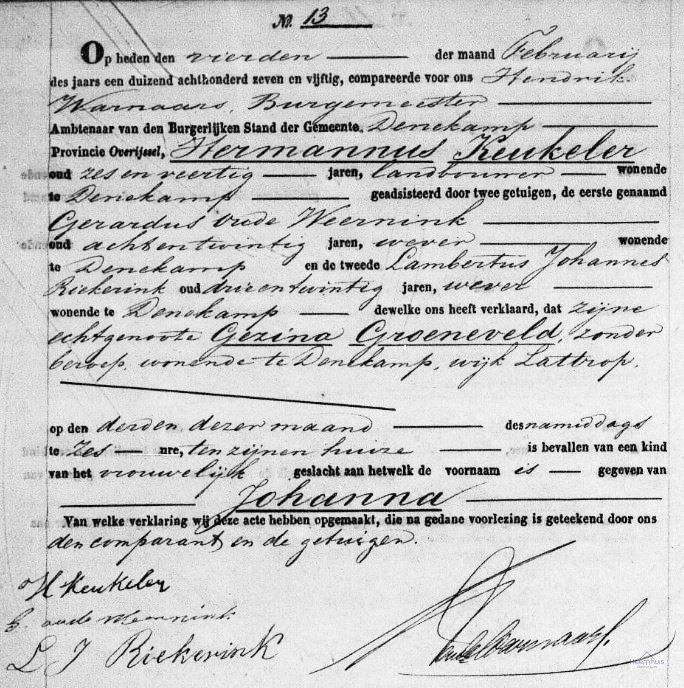 No. 13
Op heden den vierden der maand Februarij
des jaars een duizend achthonderd zeven en vijftig, compareerde voor ons Hendrik
Warnaars, Burgemeester
Ambtenaar van den Burgerlijken Stand der Gemeente Denekamp
Provincie Overijssel, Hermannus Keukeler
oud zes en veertig jaren, landbouwer wonende
te Denekamp geadsisteerd door twee getuigen, de eerste genaamd
Gerardus oude Weernink
oud achtentwintig jaren, wever wonende
te Denekamp en de tweede Lambertus Johannes
Riekerink oud drieentwintig jaren, wever
wonende te Denekamp dewelke ons heeft verklaard, dat zijne
echtgenoote Gezina Groeneveld, zonder
beroep, wonende te Denekamp, wijk Lattrop,
op den derden dezer maand des namiddags
te zes ure, ten zijnen huize is bevallen van een kind
van het vrouwelijk geslacht aan hetwelk de voornaam is gegeven van
Johanna
Van welke verklaring wij deze acte hebben opgemaakt, die na gedane voorlezing is geteekend door ons
den comparant en de getuigen.
H Keukeler
G. oude Weernink
L J Riekerink
Warnaars